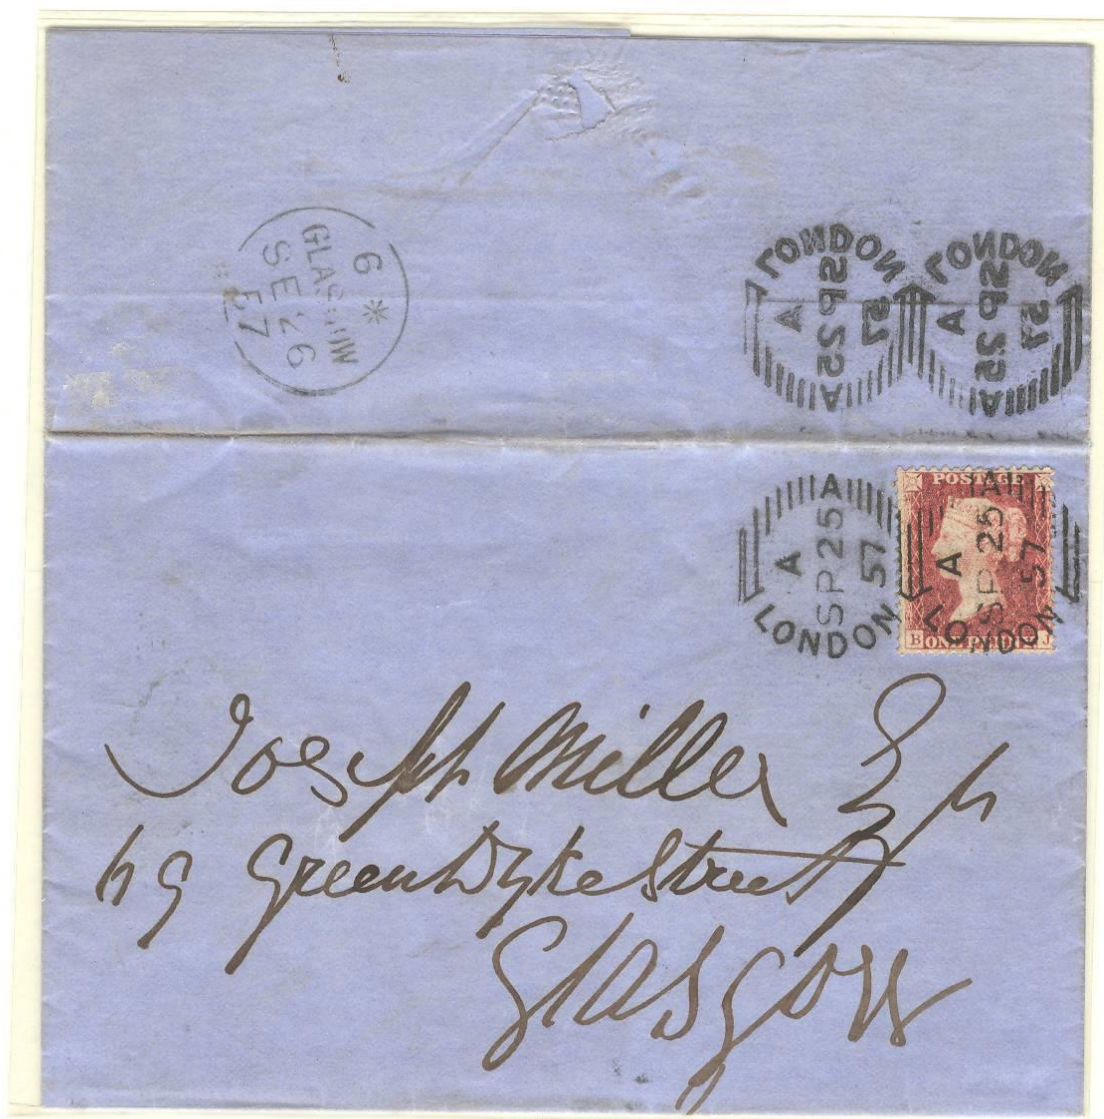 6
GLASGOW
SE 26
57
LONDON
A
SP 25
57
A
LONDON
A
SP 25
57
A
A
A
SP 25
57
LONDON
POSTAGE
A
A
SP 25
57
LONDON
ONE PENNY
B J
Joseph Miller Esq
Green Dyke Street
Glasgow